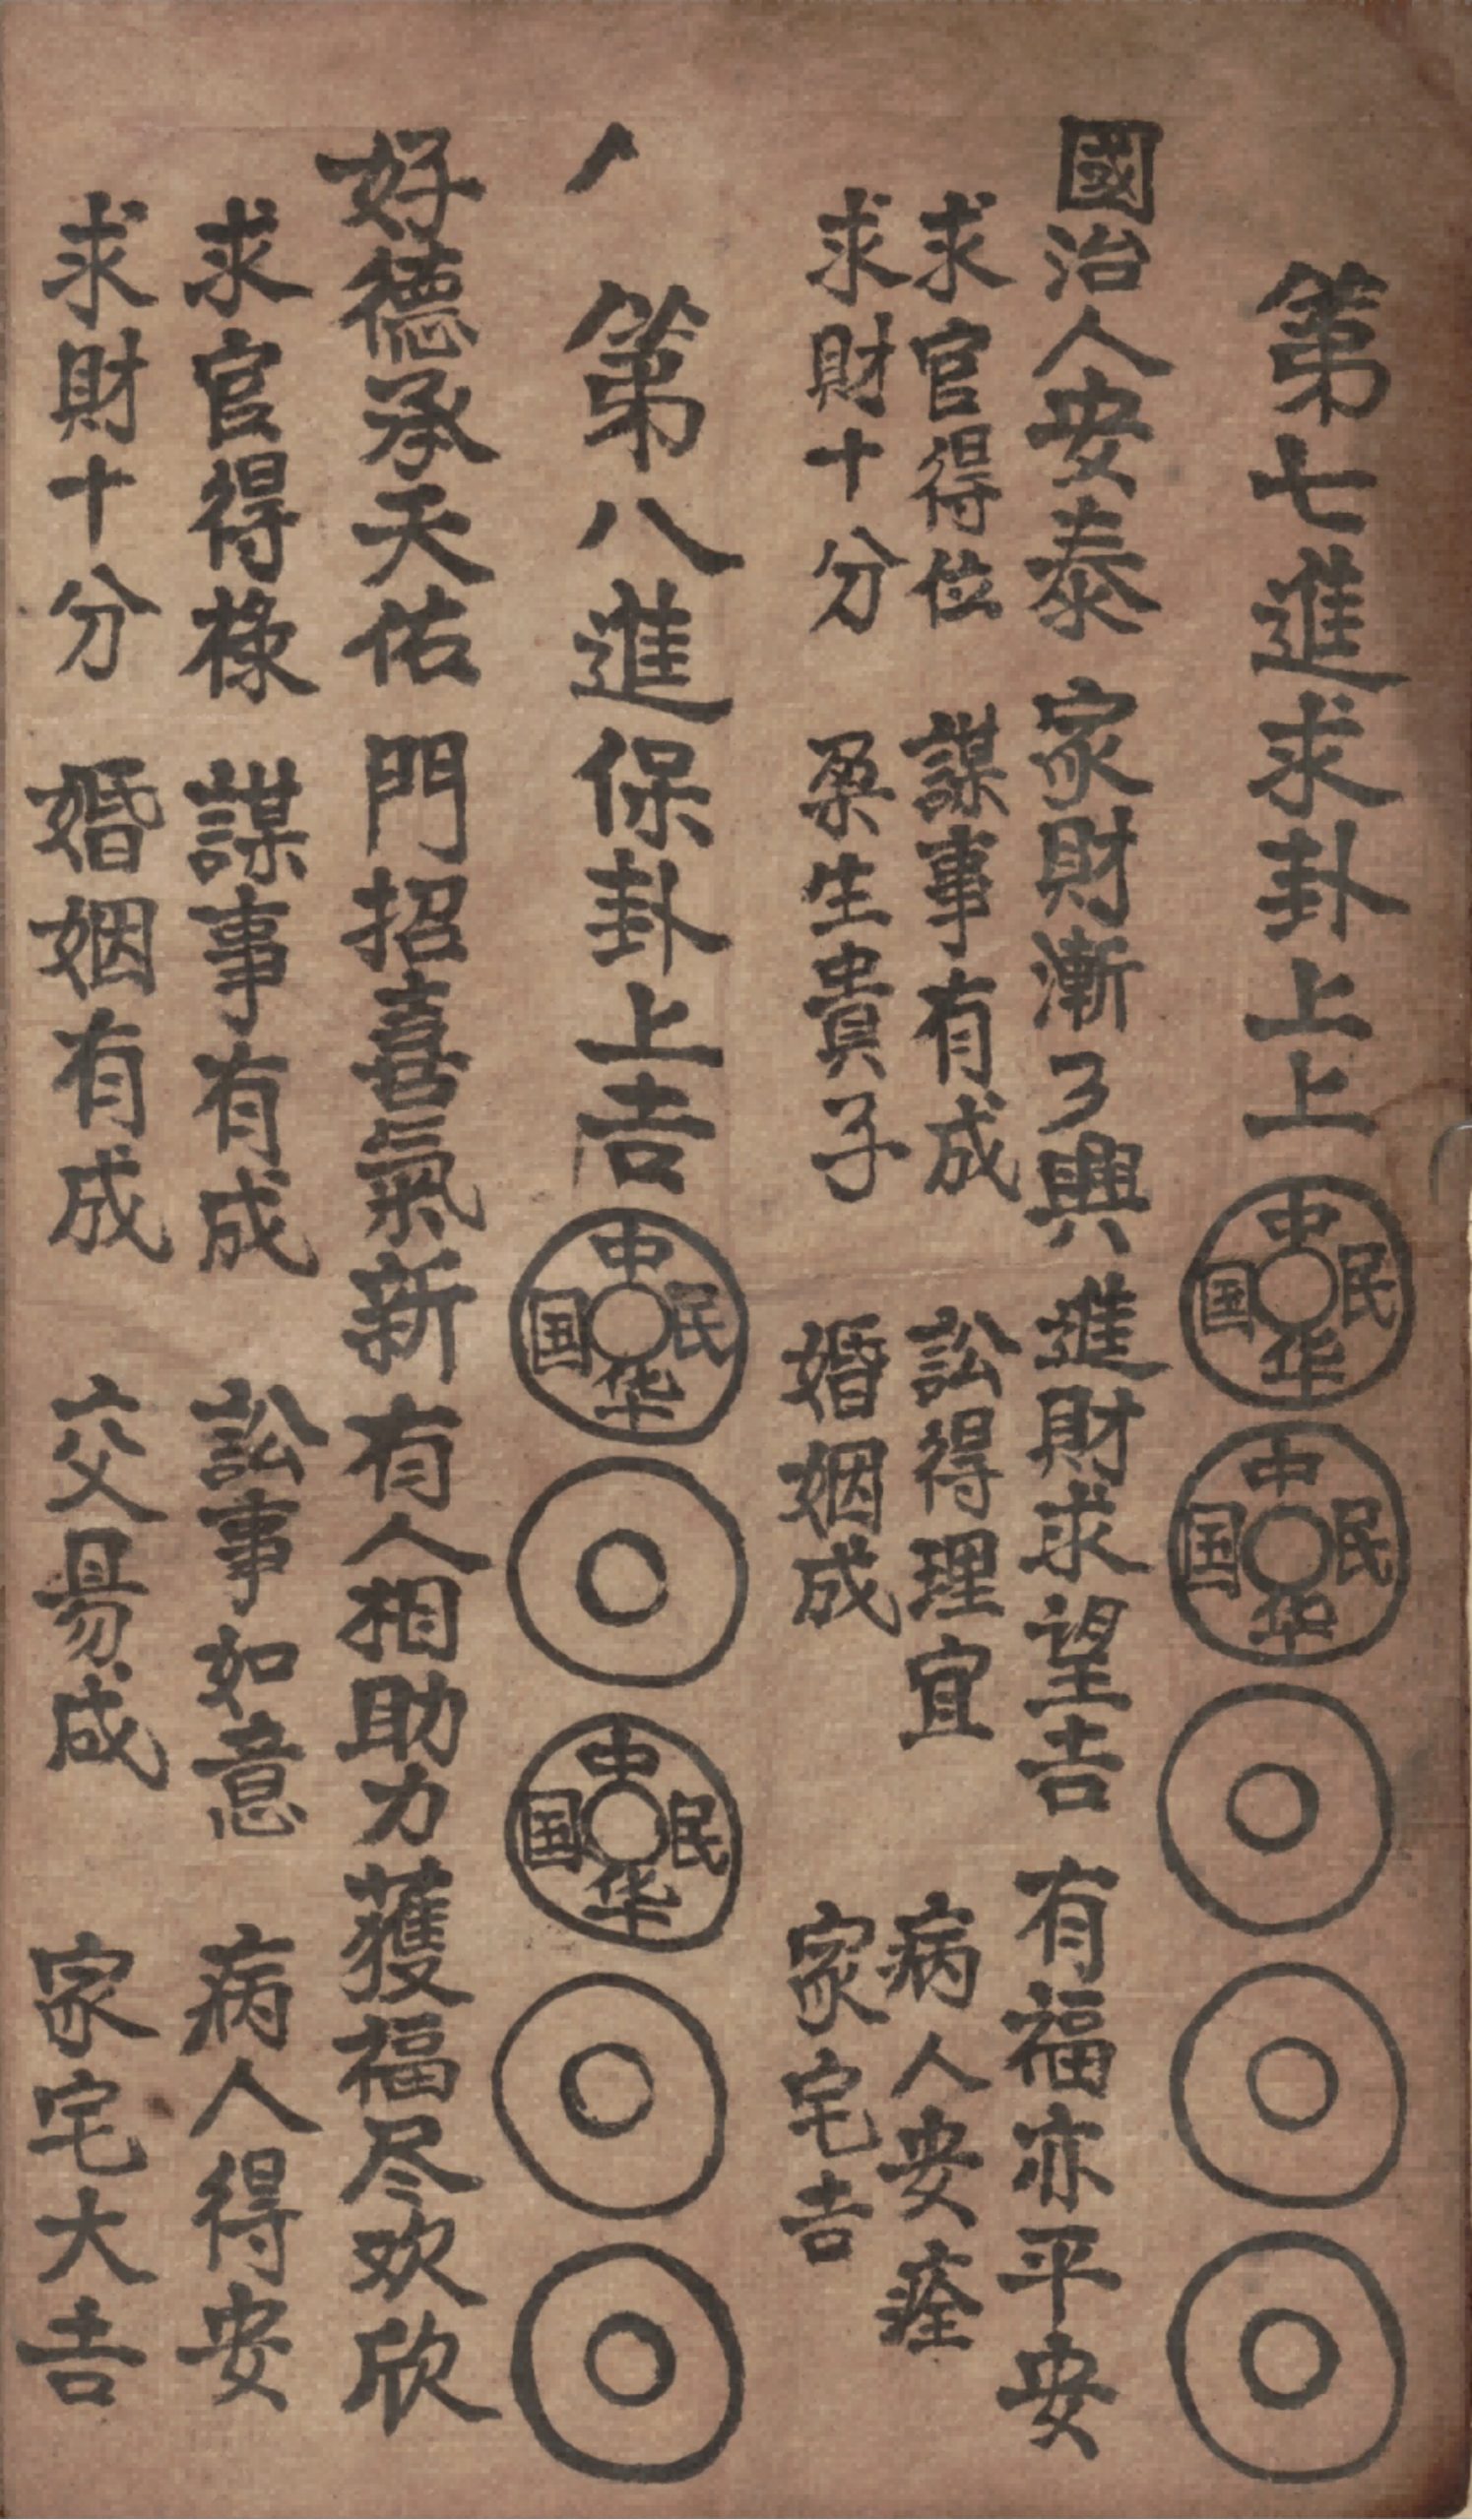 第七進求卦上上 中华民国 中华民国
國治人安泰 家財漸々興 進財求望吉 有福亦平安
求官得位 謀事有成 訟得理宜 病人安痊
求財十分 孕生貴子 婚姻成 家宅吉
第八進保卦上吉 中华民国 中华民国
好德承天佑 門招喜氣新 有人相助力 獲福尽欢欣
求官得祿 謀事有成 訟事如意 病人得安
求財十分 婚姻有成 六父易成 家宅大吉